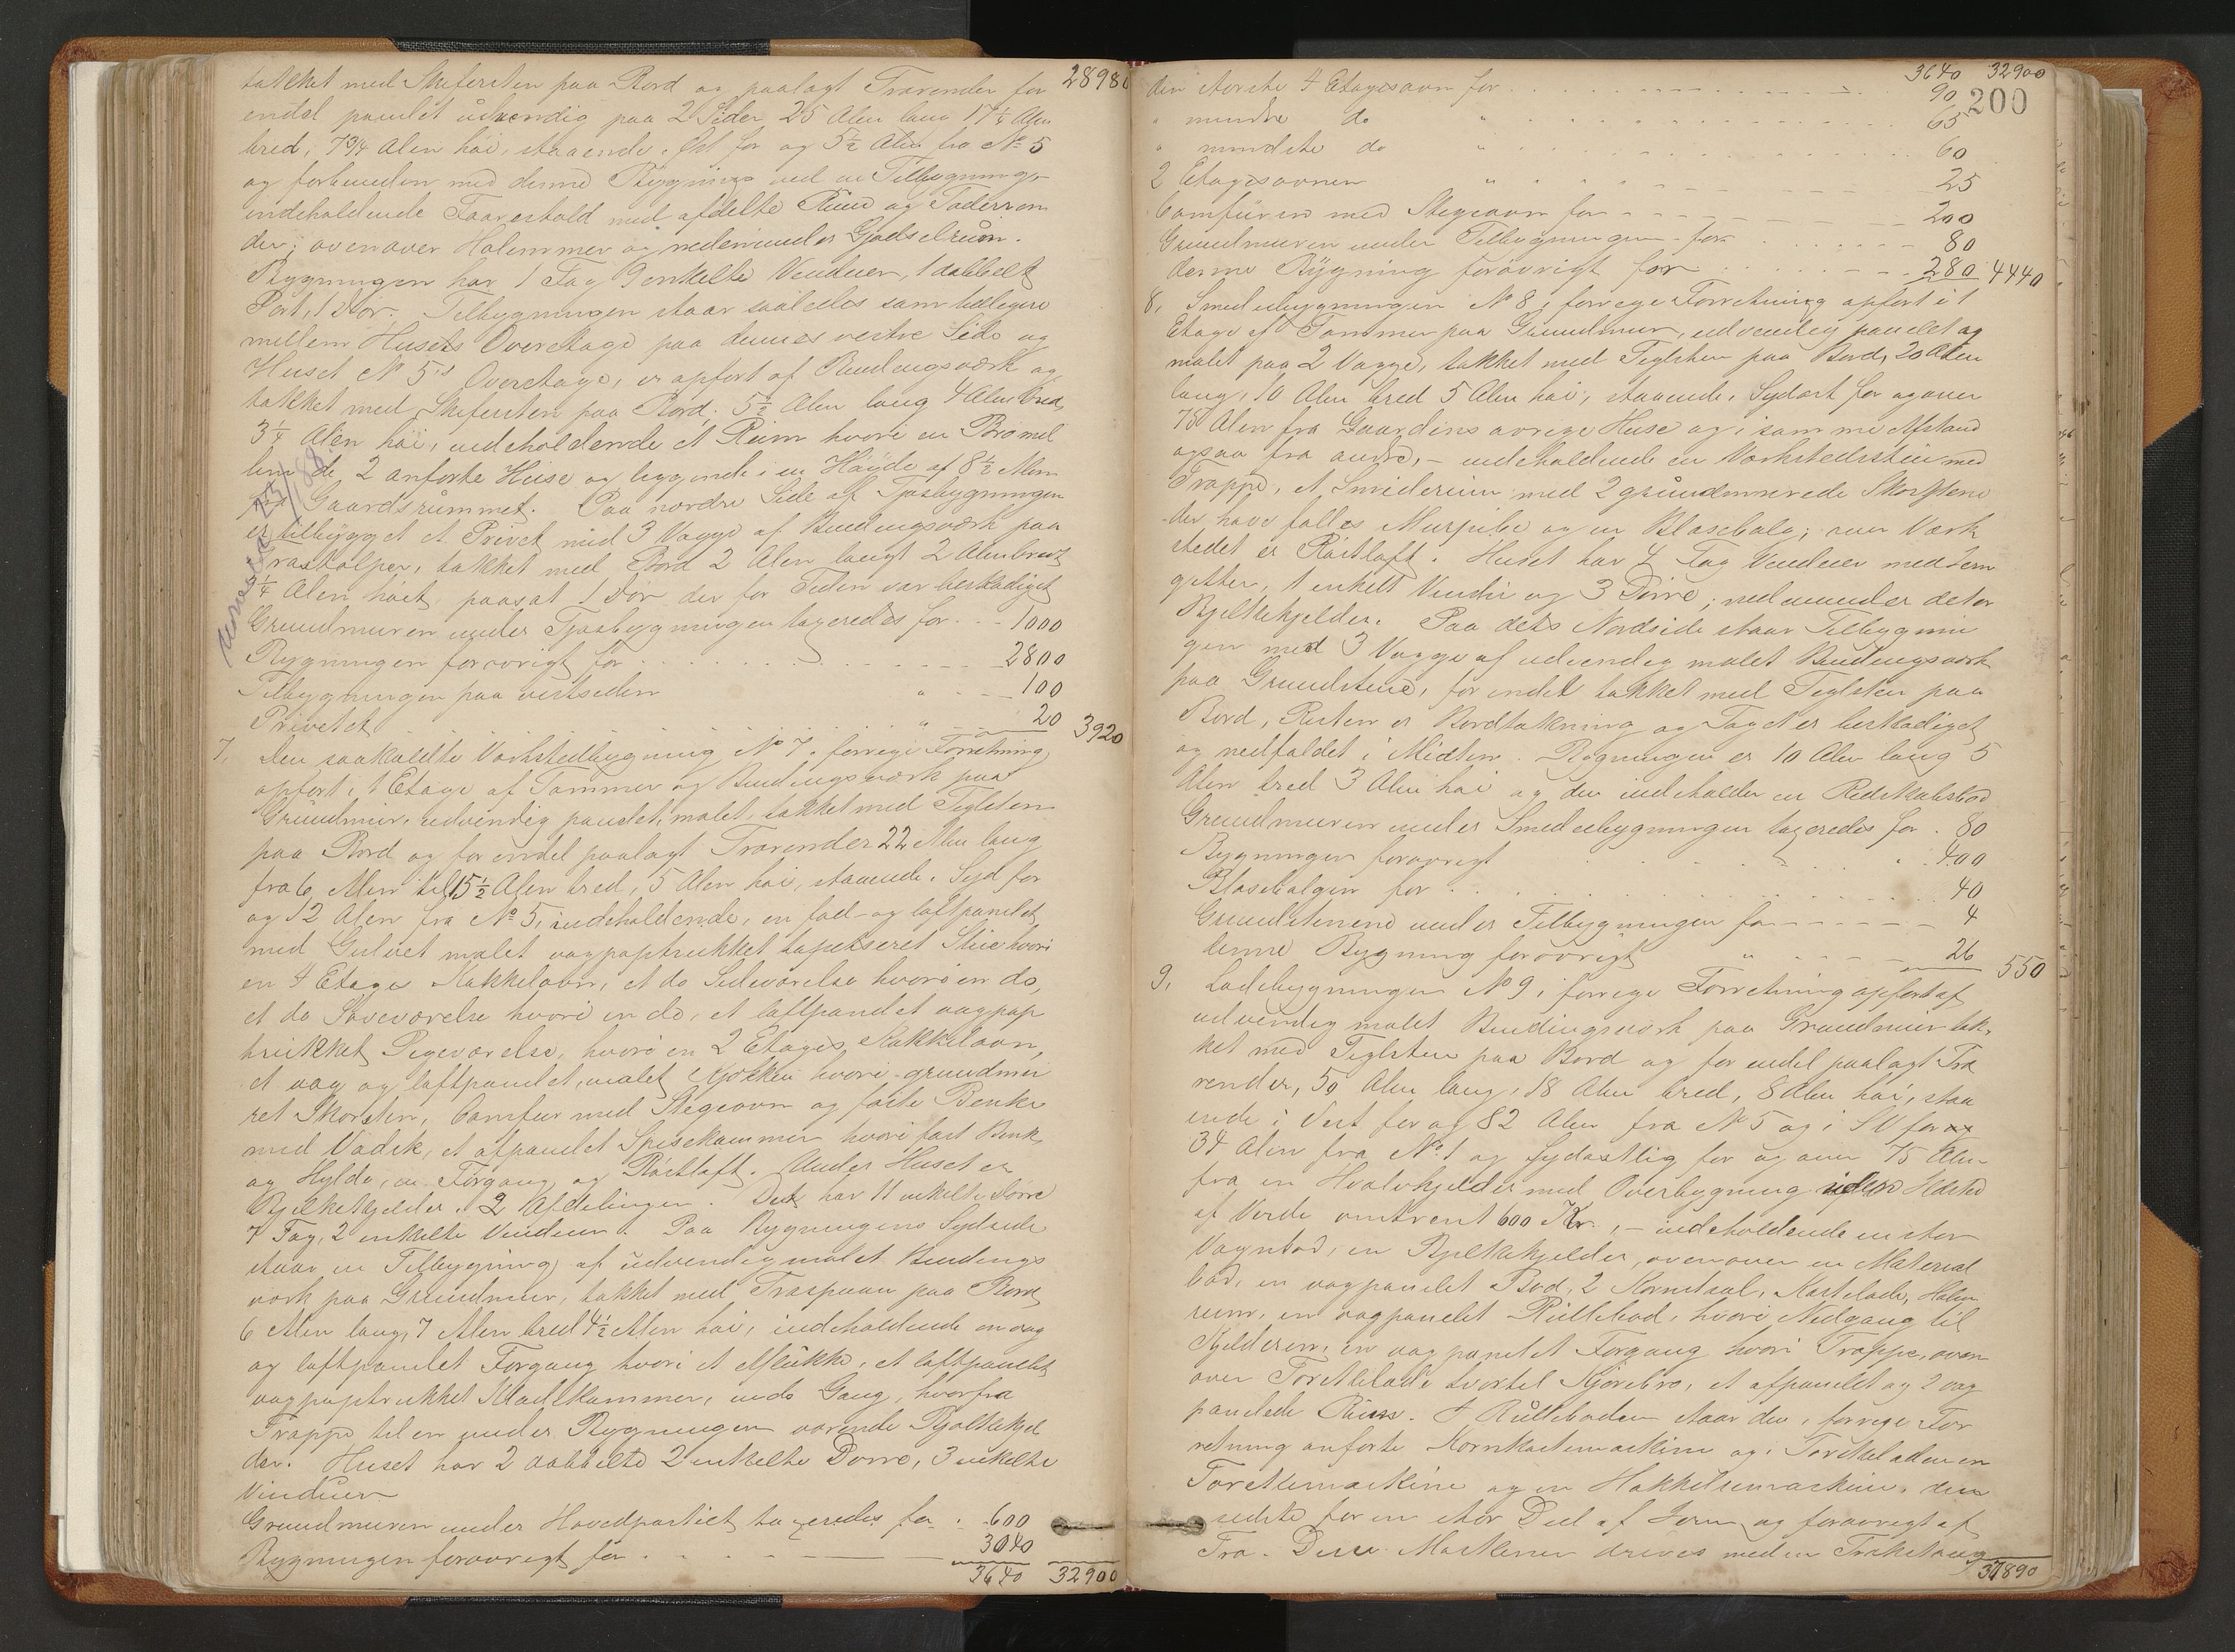 takket med Skifersten paa Bord og paalagt Trærender for 28980
endel panelet udvendig paa 2 Sider, 25 Alen lang 17½ Alen
bred, 7¾ Alen høi, staaende Øst for og 5½ Alen fra No 5
og forbunden med denne Bygning ved en Tilbygning,
indeholdende Faarestald med afdelte Rum og Foderren
der; ovenover Halemmer og nedenunder Gjødselrum.
Bygningen har 1 Fag 9 enkelte Vinduer, 1 dobbelt
Port, 1 Dør. Tilbygningen staar saaledes som tidligere
mellem Husets Overetage paa dennes vestre Side og
Huset No 5's Overetage, er opført af Bindingsværk og
takket med Skifersten paa Bord, 5½ Alen lang 4 Alen bred,
3¼ Alen høi, indeholdende et Rum hvori en Bro mel
lem de 2 anførte Huse og liggende i en Høide af 8½ Alen
fra Gaardsrummet. Paa nordre Side af Fjøsbygningen
er tilbygget et Privet med 3 Vægge af Bindingsværk paa
Træstolper, takket med Bord 2 Alen langt 2 Alen bredt
¼ Alen høit, paasat 1 Dør der for Tiden var beskadiget
Grundmuren under Fjøsbygningen taxeredes for 1000
Bygningen forøvrigt for 2800
Tilbygningen paa vestsiden " 100
Privetet " 20 3920
7, Den saakaldte Værkstedbygning No 7 i forrige Forretning
opført i 1 Etage af Tømmer og Bindingsværk paa
Grundmur, udvendig panelet, malet, takket med Teglsten
paa Bord og for endel paalagt Trærender 22 Alen lang
fra 6 Alen til 15½ Alen bred, 5 Alen høi, staaende Syd for
og 12 Alen fra No 5, indeholdende, en fod- og loftpanelet
med Gulvet malet vægpaptrukket tapetseret Stue hvori
en 4 Etages Kakkelovn, et do Sideværelse hvori en do,
et do Soveværelse hvori en do, et loftpanelet vægpap
trukket Pigeværelse, hvori en 2 Etages Kakkelovn,
et væg og loftpanelet, malet Kjøkken hvori grundmu
ret Skorsten, Comfur med Stegeovn og faste Benke
med Vadsk, et afpanelet Spisekammer hvori fast Benk
og Hylde, en Forgang og Røstloft. Under Huset er
Bjelkekjelder i 2 Afdelinger. Det har 11 enkelte Dørre
7 Fag, 2 enkelte Vinduer. Paa Bygningens Sydside
staar en Tilbygning af udvendig malet Bindings
værk paa Grundmur, takket med Træspaan paa Bord
6 Alen lang, 7 Alen bred 4½ Alen høi, indeholdende en væg
og loftpanelet Forgang hvori et Aflukke, et loftpanelet
vægpaptrukket Madkammer, en do Gang, hvorfra
Trappe til en under Bygningen værende Bjelkekjel
der. Huset har 2 dobbelte 2 enkelte Dørre, 3 enkelte
Vinduer
Grundmuren under Hovedpartiet taxeredes for 600
Bygningen forøvrigt for 3040
3640 32900
3640 32900
200
den største 4 Etagesovn for 90
" mindre do " 65
" mindste do " 60
2 Etagesovnen " 25
Comfuren med Stegeovn for 200
Grundmuren under Tilbygningen for 80
denne Bygning forøvrigt for 280 4440
8, Smedebygningen No 8 i forrige Forretning opført i 1
Etage af Tømmer paa Grundmur, udvendig panelet og
malet paa 2 Vægge, takket med Teglsten paa Bord, 20 Alen
lang, 10 Alen bred 5 Alen høi, staaende Sydost for og over
75 Alen fra Gaardens øvrige Huse og i samme Afstand
ogsaa fra andre, – indeholdende en Værkstedstue med
Trappe, et Smiderum med 2 grundmurede Skorstene
der have fælles Murpibe og en Blæsebalg; over Værk
stedet er Røstloft. Huset har 4 Fag Vinduer med Jern
gitter, 1 enkelt Vindu og 3 Dørre; nedenunder det er
Bjelkekjelder. Paa dets Nordside staar Tilbygnin
gen med 3 Vægge af udvendig malet Bindingsværk
paa Grundstene, for endel takket med Teglsten paa
Bord, Resten er Bordtækning og Taget er beskadiget
og nedfaldet i Midten. Bygningen er 10 Alen lang 5
Alen bred 3 Alen høi og den indeholder en Redskabsbod
Grundmuren under Smedebygningen taxeredes for 80
Bygningen forøvrigt 400
Blæsebalgen for 40
Grundstenene under Tilbygningen for 4
denne Bygning forøvrigt " 26 550
9, Ladebygningen No 9 i forrige Forretning opført af
udvendig malet Bindingsværk paa Grundmur tak,
ket med Teglsten paa Bord og for endel paalagt Træ
render, 50 Alen lang, 18 Alen bred, 8 Alen høi, staa
ende i Vest for og 82 Alen fra No 5 og i SV for
34 Alen fra No 1 og sydostlig for og over 75 Alen
fra en Hvalvkjelder med Overbygning uden Ildsted
af Verdi omtrent 600 Kr., – indeholdende en stor
Vognbod, en Bjelkekjelder, ovenover en Material
bod, en vægpanelet Bod, 2 Kornstaal, Kastelade, Halm
rum, en vægpanelet Rullebod, hvori Nedgang til
Kjelderen, en vægpanelet Forgang hvori Trappe, oven
over Tærskelade hvortil Kjørebro, et afpanelet og 2 væg
panelede Rum. I Rulleboden staar den i forrige For
retning anførte Kornkastemaskine og i Tærskeladen en
Tærskemaskine og en Hakkelsemaskine, den
sidste for en stor Del af Jern og forøvrigt af
Træ. Disse Maskiner drives med en Trøketaug
37890